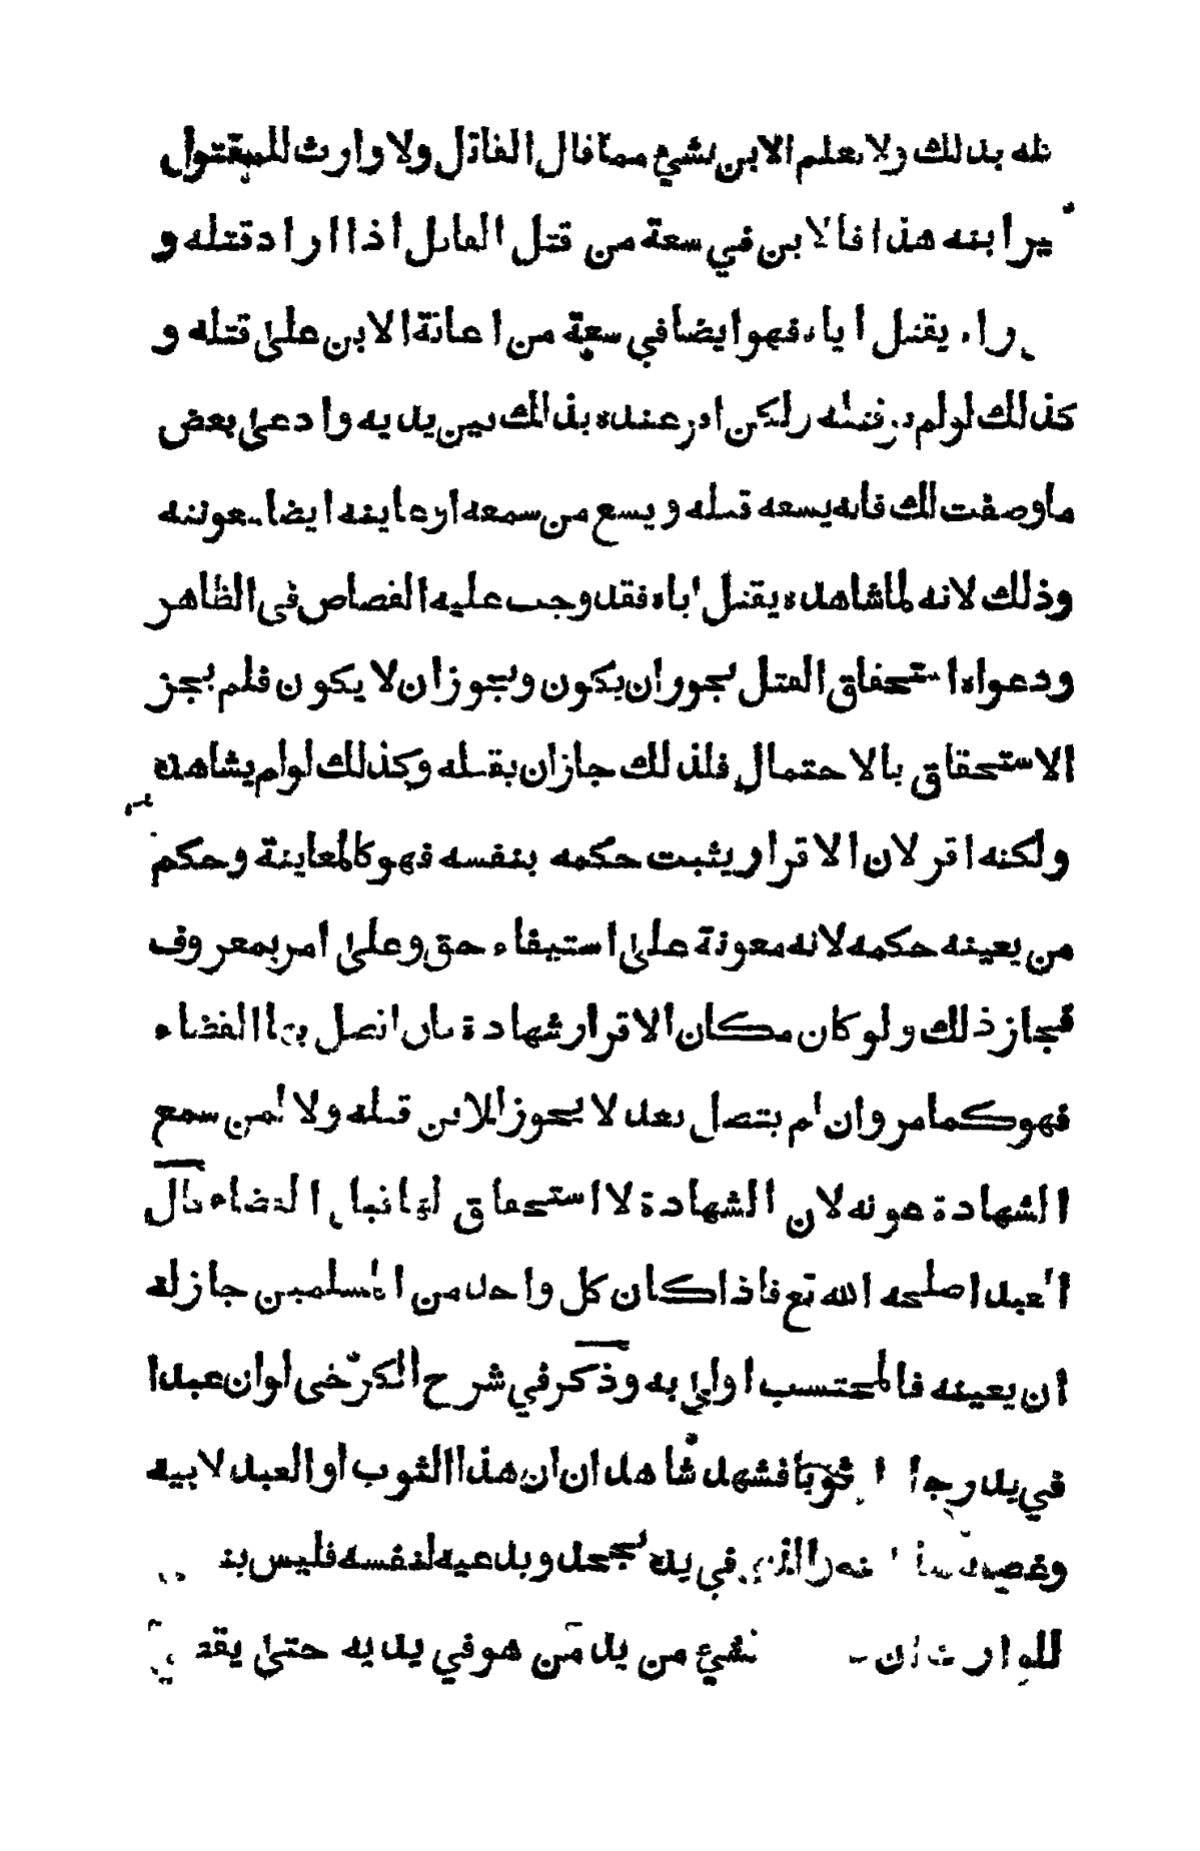 بذلك ولا يعلم الابن بشئ مما قال القاتل ولا وارث للمقتول
ابنه هذا فالابن في سعة من قتل القاتل اذا اراد قتله و
يقتل اباه فهو ايضا في سعة من اعانة الابن على قتله و
كذلك لولم قتله ولكن اقر عنده بذلك بين يديه وادعى بعض
ما وصفت لك فانه يسعه قتله ويسع من سمعه او عاينه ايضا معونته
وذلك لانه لما شاهده يقتل اباه فقد وجب عليه القصاص في الظاهر
ودعواه استحقاق القتل يجوز ان يكون ويجوز ان لا يكون فلم يجز
الاستحقاق بالاحتمال فلذلك جاز ان يقتله وكذلك لو لم يشاهده
ولكنه اقر لان الاقرار يثبت حكمه بنفسه فهو كالمعاينة وحكم
من يعينه حكمه لانه معونة على استيفاء حق وعلى امر بمعروف
فجاز ذلك ولو كان مكان الاقرار شهادة بان اتصل بها القضاء
فهو كما مر وان لم يتصل بعد لا يجوز للابن قتله ولا لمن سمع
الشهادة عونه لان الشهادة لا استحقاق لها قبل القضاء قال
العبد اصلحه الله تع فاذا كان كل واحد من المسلمين جاز له
ان يعينه فالمحتسب اولى به وذكر في شرح الكرخى لو ان عبدا
في يد رجل ثوبا فشهد شاهد ان ان هذا الثوب او العبد لابيه
في يده يجحد ويدعيه لنفسه فليس
للوارث ان بشئ من يد من هو في يديه حتى